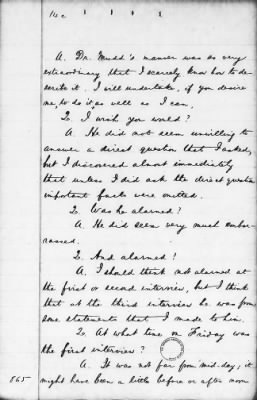 A. Dr. Mudd's manner was so very
extraordinary that I scarcely know how to de-
scribe it. I will undertake, if you desire
me, to do it, as well as I can.
Q. I wish you would?
A. He did not seem unwilling to
answer a direct question that I asked,
but I discovered almost immediately
that unless I did ask the direct question
important facts were omitted.
Q. Was he alarmed?
A. He did seem very much embar-
rassed.
Q. And alarmed?
A. I should think not alarmed at
the first or second interview, but I think
that at the third interview he was from
some statements that I made to him.
Q. At what time on Friday was
the first interview?
A. It was not far from mid-day; it
865
might have been a little before or after noon